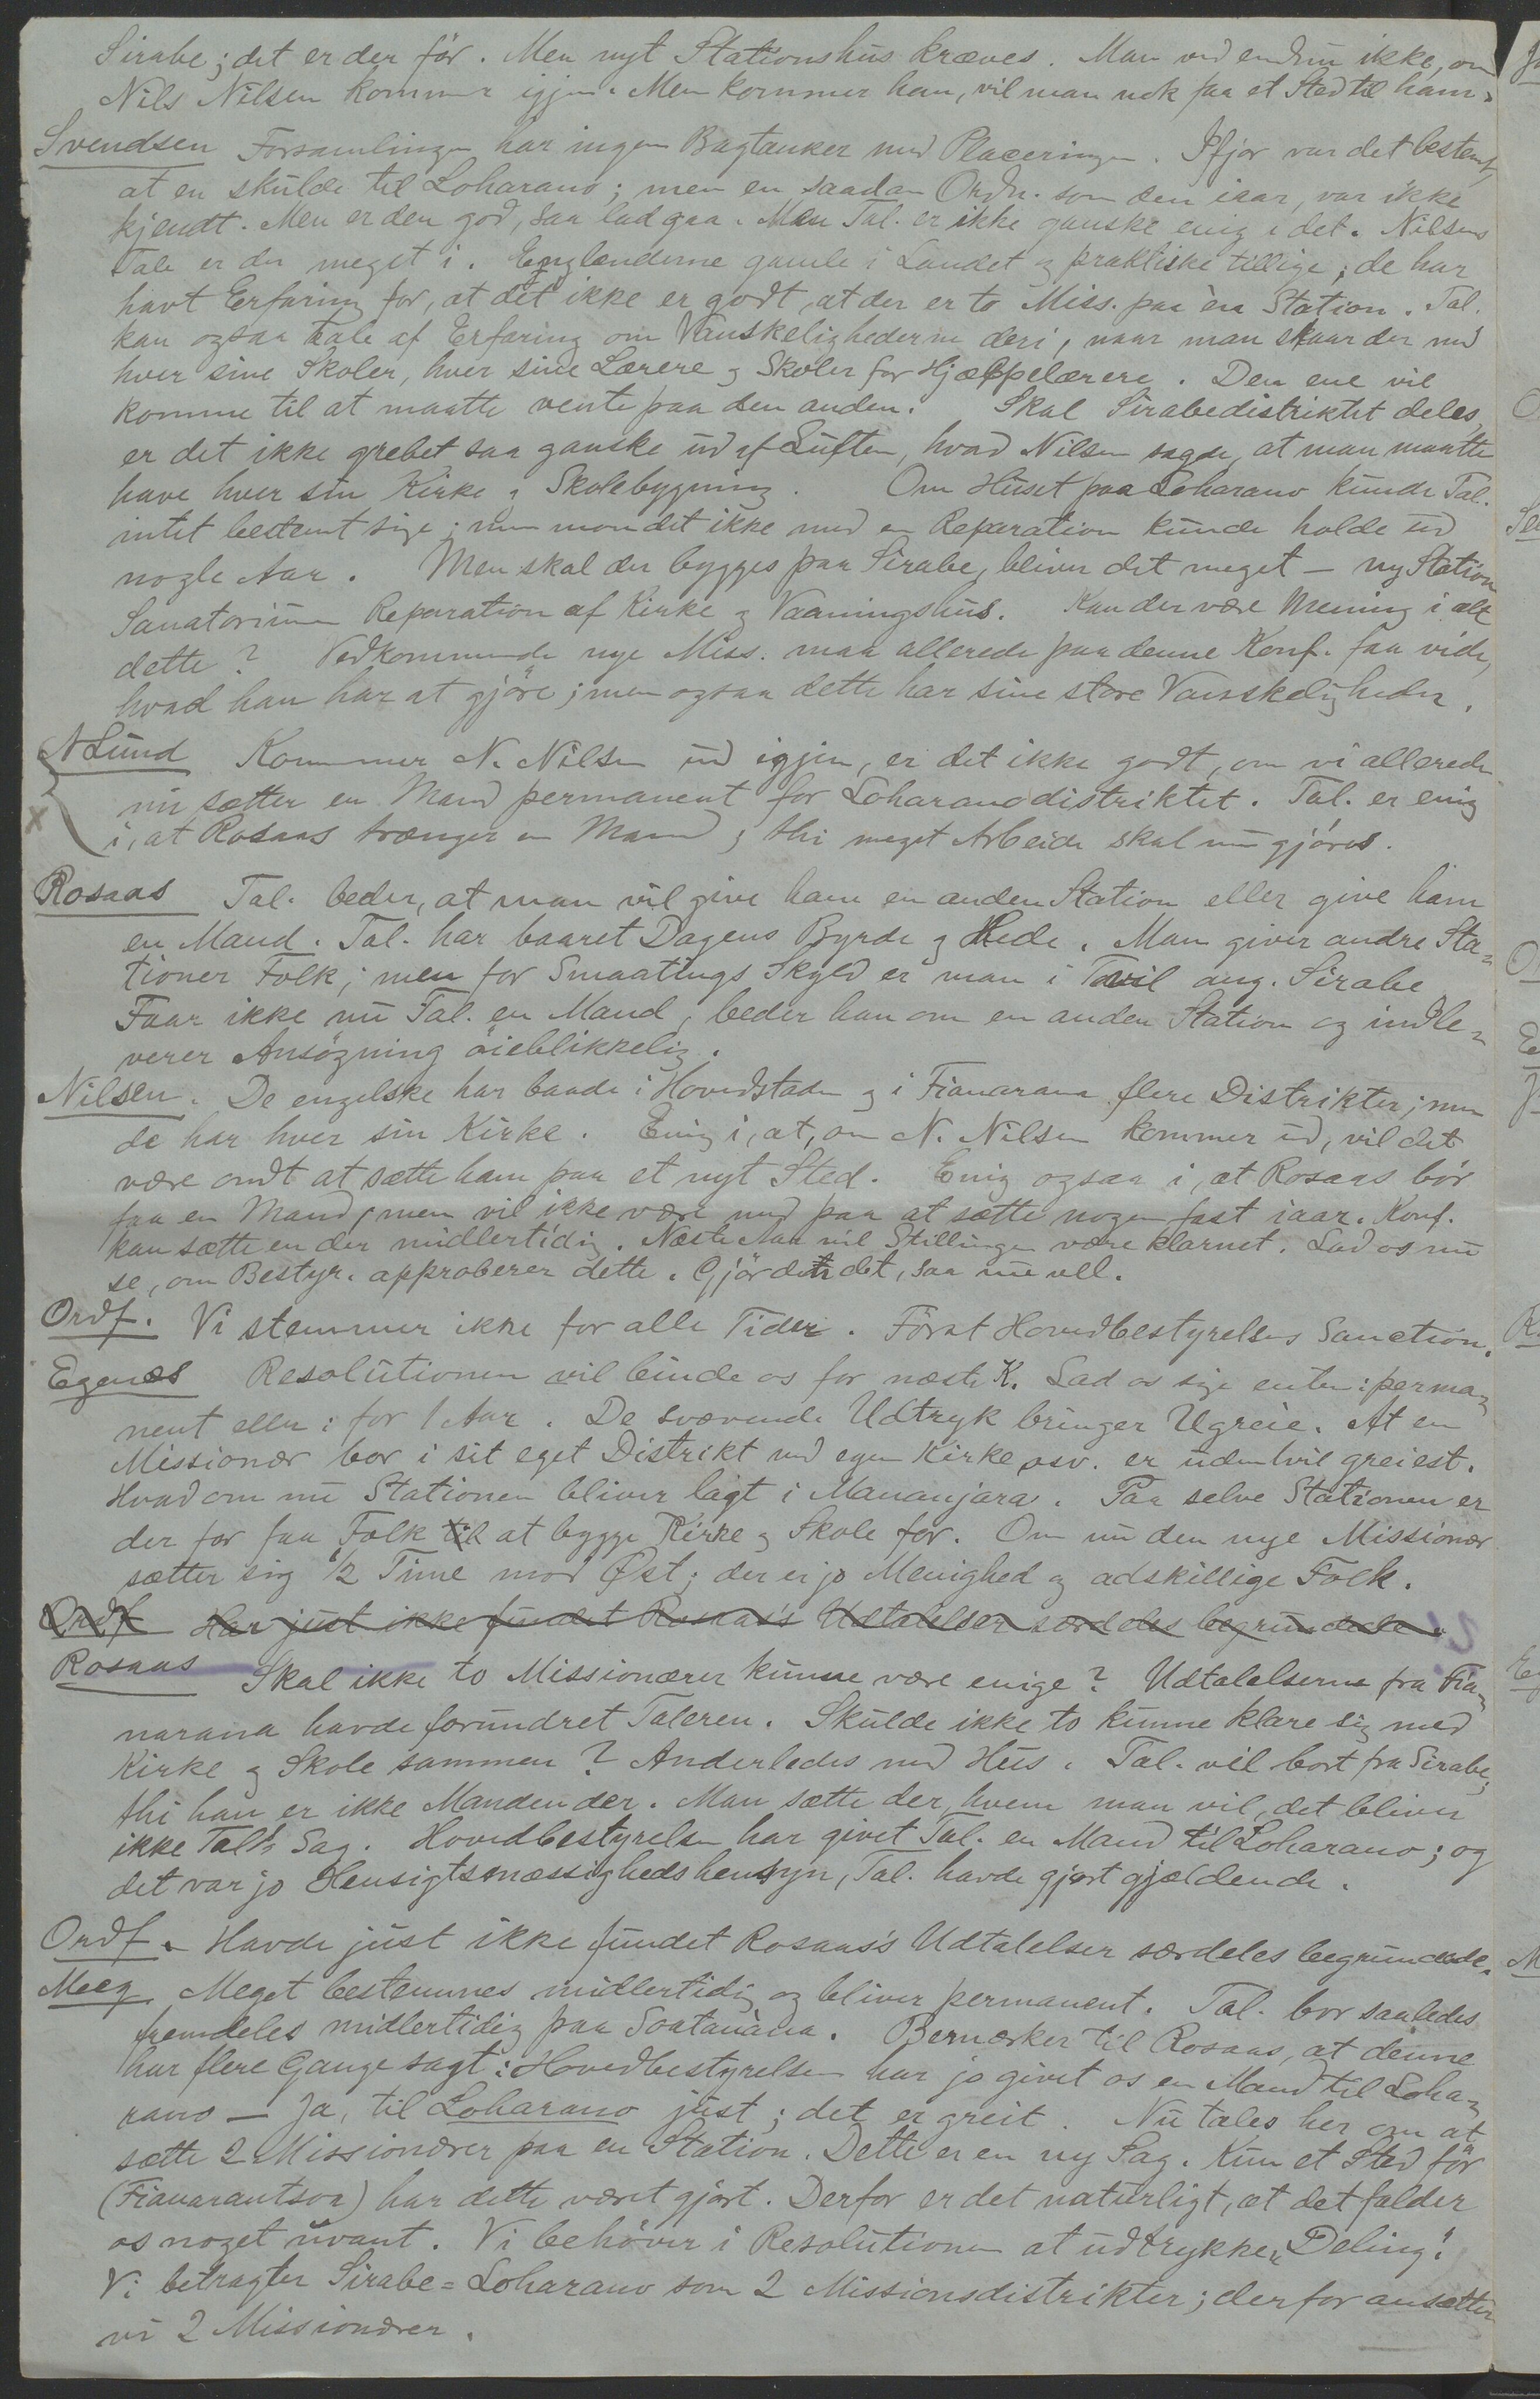 Sirabe; det er der før. Men nyt Stationshus kræves. Man ved endnu ikke, om
Nils Nilsen kommer igjen. Men kommer han, vil man nok faa et Sted til ham.
Svendsen Forsamlingen har ingen Bagtanker med Placeringen. Ifjor var det bestemt,
at en skulde til Loharano; men en saadan Ordn. som den iaar, var ikke
kjendt. Men er den god, saa lad gaa. Men Tal. er ikke ganske enig i det. Nilsens
Tale er der meget i. Englænderne gamle i Landet og praktiske tillige; de har
havt Erfaring for, at det ikke er godt, at der er to Miss. paa èn Station. Tal.
kan ogsaa tale af Erfaring om Vanskelighederne deri, naar man staar der med
hver sine Skoler, hver sine Lærere og Skoler for Hjælpelærere. Den ene vil
komme til at maatte vente paa den anden. Skal Sirabedistriktet deles,
er det ikke grebet saa ganske ud af Luften, hvad Nilsen sagde, at man maatte
have hver sin Kirke og Skolebygning. Om Huset paa Loharano kunde Tal.
intet bestemt sige; men mon det ikke med en Reparation kunde holde ud
nogle Aar. Men skal der bygges paa Sirabe, bliver det meget – ny Station
Sanatorium Reparation af Kirke og Vaaningshus. Kan der være Mening i alt
dette? Vedkommende nye Miss. maa allerede paa denne Konf. faa vide,
hvad han har at gjöre; men ogsaa dette har sine store Vanskeligheder.
N Lund Kommer N. Nilsen ud igjen, er det ikke godt, om vi allerede
nu sætter en Mand permanent for Loharanodistriktet. Tal. er enig
x i, at Rosaas trænger en Mand; thi meget Arbeide skal nu gjöres.
Rosaas Tal. beder, at man vil give ham en anden Station eller give ham
en Mand. Tal. har baaret Dagens Byrde og Hede. Man giver andre Sta-
tioner Folk; men for Smaatings Skyld er man i Tvil ang. Sirabe
Faar ikke nu Tal. en Mand, beder han om en anden Station og indle-
verer Ansögning öieblikkelig.
Nilsen. De engelske har baade i Hovedstaden og i Fianarana flere Distrikter; men
de har hver sin Kirke. Enig i, at, om N. Nilsen kommer ud, vil det
være ondt at sætte ham paa et nyt Sted. Enig ogsaa i, at Rosaas bör
faa en Mand, men vil ikke være med paa at sætte nogen fast iaar. Konf.
kan sætte en der midlertidig. Næste Aar vil Stillingen være klarnet. Lad os nu
se, om Bestyr. approberer dette. Gjör det, saa nu vel.
Ordf. Vi stemmer ikke for alle Tider. Först Hovedbestyrelses Sanction.
Egenæs Resolutionen vil binde os for næste K. Lad os sige enten: perma-
nent eller: for 1 Aar. De svævende Udtryk bringer Ugreie. At en
Missionær bor i sit eget Distrikt med egen Kirke osv. er uden tvil greiest.
Hvad om nu Stationen bliver lagt i Mananjara. Paa selve Stationen er
der for faa Folk til at bygge Kirke og Skole for. Om nu den nye Missionær
sætter sig 1/2 Time mod Øst; der er jo Menighed og adskillige Folk.
Ordf Har just ikke fundet Rosaas's Udtalelser særdeles begrundede.
Rosaas Skal ikke to Missionærer kunne være enige? Udtalelserne fra Fia-
narana havde forundret Taleren. Skulde ikke to kunne klare sig med
Kirke og Skole sammen? Anderledes med Hus. Tal. vil bort fra Sirabe,
thi han er ikke Manden der. Man sætte der, hvem man vil, det bliver
ikke Tal's Sag. Hovedbestyrelsen har givet Tal. en Mand til Loharano; og
det var jo Hensigtsmæssighedshensyn, Tal. havde gjort gjældende.
Ordf. Havde just ikke fundet Rosaas's Udtalelser særdeles begrundede.
Meeg. Meget bestemmes midlertidig og bliver permanent. Tal. bor saaledes
fremdeles midlertidig paa Soatanàna. Bemærker til Rosaas, at denne
har flere Gange sagt: Hovedbestyrelsen har jo givet os en Mand til Loha-
rano – Ja, til Loharano just; det er greit. Nu tales her om at
sætte 2 Missionærer paa en Station. Dette er en ny Sag. Kun et Sted för
(Fianarantsoa) har dette været gjort. Derfor er det naturligt, at det falder
os noget uvant. Vi behöver i Resolutionen at udtrykke „Deling".
Vi betragter Sirabe=Loharano som 2 Missionsdistrikter; derfor ansætter
vi 2 Missionærer.